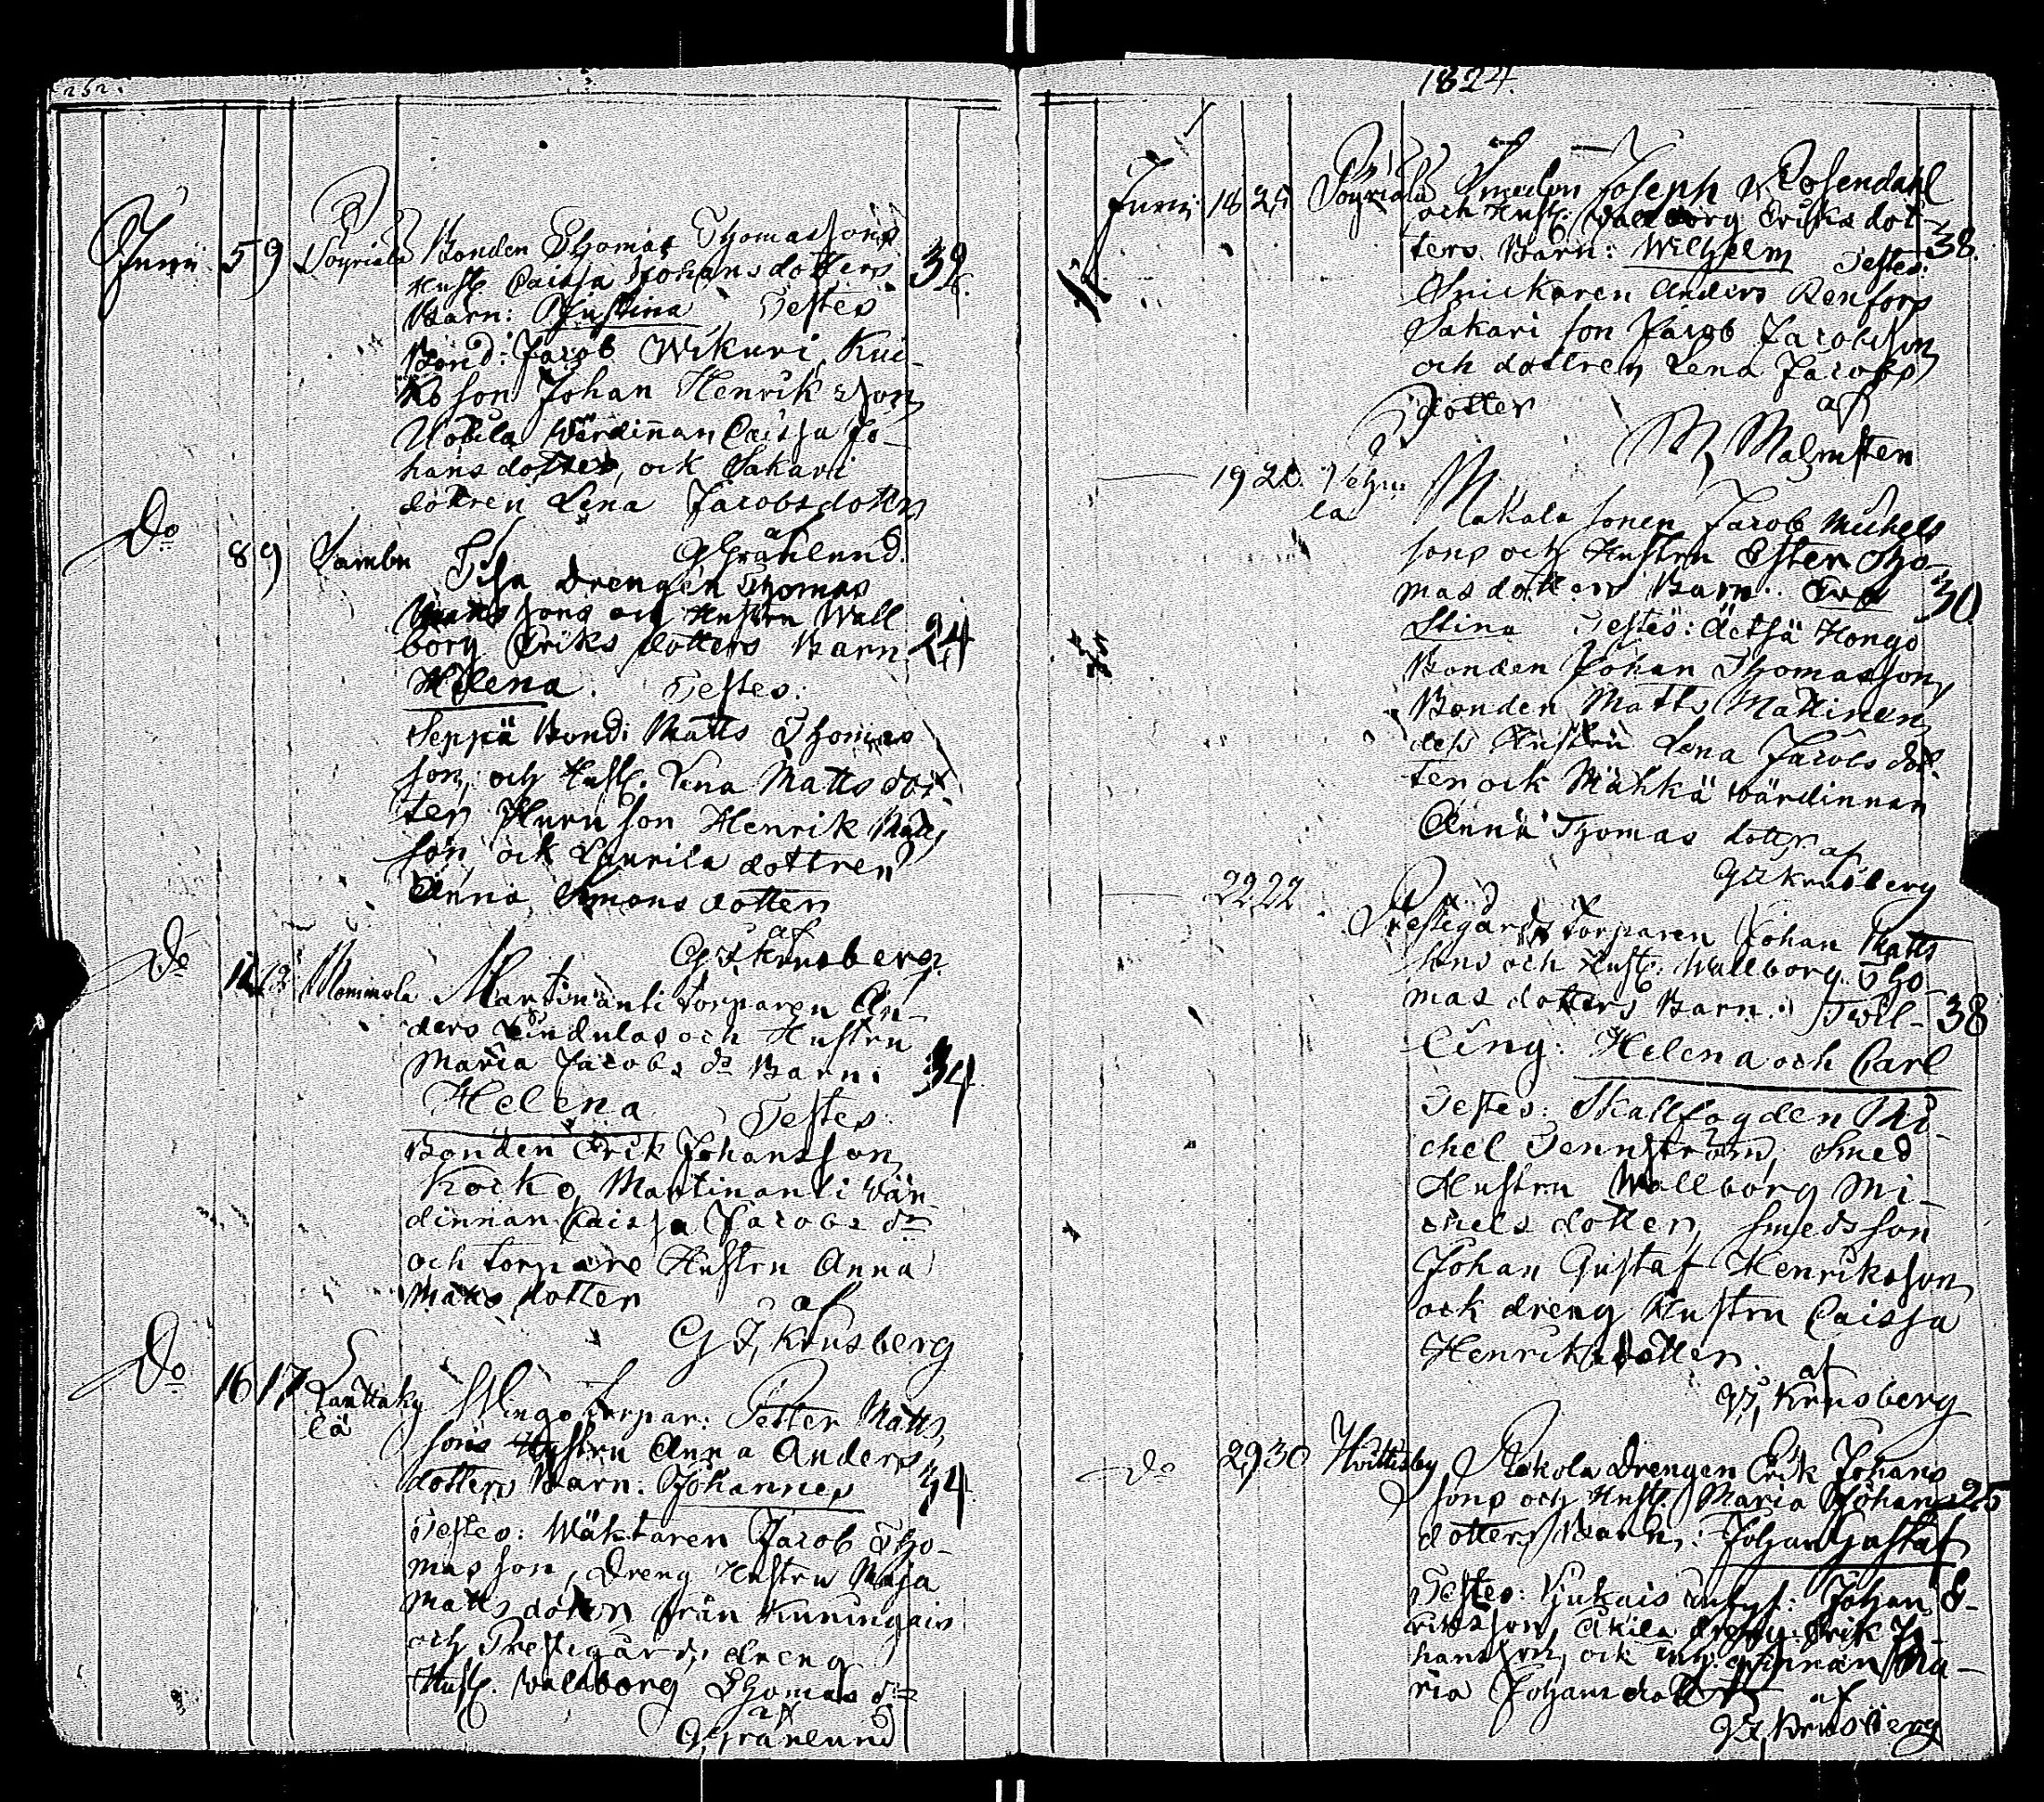 252.
Junii 5 9 Poyriala Bonden Thomas Thomassons
Hust. Caissa Johans dotters 32
Barn: Justina Testes
Bond: Jacob Wikuri, Kui-
ko son Johan Henriksson
Uotila Wärdinnan Caissa Jo-
hans dotter, ock Sakari
dottren Lena Jacobsdotter
af
G Grönlund.
Do 8 9 Sambu drengen Thomas
Matts sons och Hustru Wall
borg Eriks dotters Barn 24
Helena. Testes:
Seppä Bond: Matts Thomas
son, och Hust. Lena Matts dot
ter Huru son Henrik Matts
son ock Laurila dottren
Anna Simons dotter
af
G I Krusberg
Do 12 13 Mommola Martinanti torparen An-
ders Lindulas och Hustru
Maria Jacobs dr Barn: 34
Helena Testes:
Bonden Erik Johansson
Kocko, Martinanti Vär
dinnan Caissa Jacobs dr
och torpare Hustru Anna
Matts dotter
af
G I, Krusberg
Do 16 17 Lanttaky Hingo torpar: Petter Matts
lä sons Hustru Anna Anders
dotters Barn: Johannes 34
Testes: Wäktaren Jacob Tho-
mas son, Dreng Hustru Maja
Matts dotter från Kuningais
och Prestegårds dreng
Hust. Wallborg Thomas dr
af
G Grönlund
1824.
Junii 18 20 Poyriala Smeden Joseph Rosendahl
och Hust. Wallborg Eriks dot-
ters Barn: Wilhelm Testes: 38.
Snickaren Anders Renfors
Sakari son Jacob Jacobsson
och dottren Lena Jacobs
dotter
af
M, Malmsten
19 20. Vehmala Makala sonen Jacob Michels
sons och Hustru Ester Tho-
mas dotters Barn: Eva 30
Stina Testes: Äetsä Hongo
Bonden Johan Thomasson
Bonden Matts Mattinen
des Hustru Lena Jacobs dot
ter ock Mähkä wärdinnan
Anna Thomas dotter af
G I Krusberg
22 22. Prestegårds torparen Johan Matts
sons och Hust. Wallborg Tho-
mas dotters Barn: Twil- 38
ling: Helena och Carl
Testes: Skallfogden Mi-
chel Tennström, Smed
Hustru Wallborg Mi-
chels dotter, smedsson
Johan Gustaf Henriksson
ock dreng Hustru Caissa
Henriksdotter.
af
G I, Krusberg
Do 29 30 Hvittisby drengen Erik Johans
sons och Hust. Maria Johans 25
dotters Barn: Johan Gustaf
Testes: Johan E-
riksson, dreng: Erik Jo-
hansson, ock Ma-
ria Johans dotter
af
G I, Krusberg